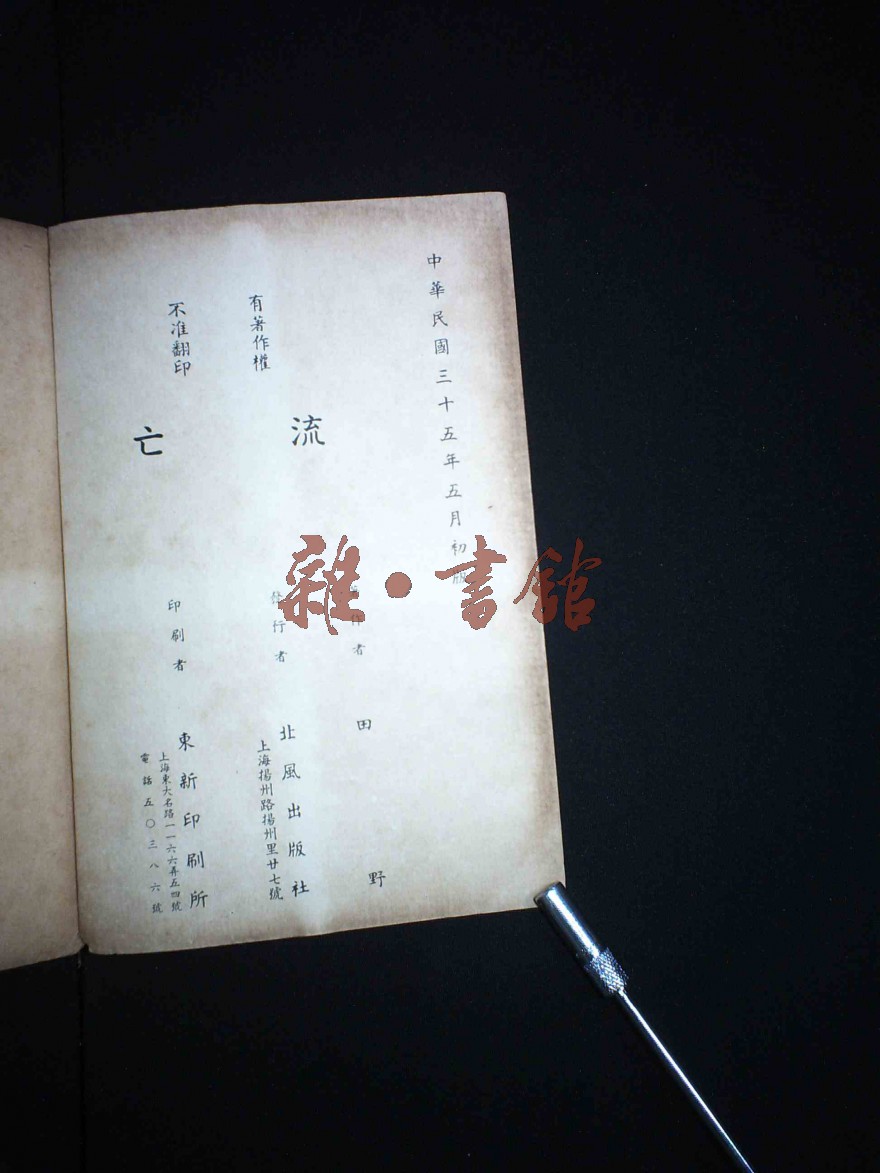 中華民國三十五年五月初版
流亡
有著作權
不准翻印
著作者 田野
發行者 北風出版社
上海揚州路揚州里廿七號
印刷者 東新印刷所
上海東大名路一一六六弄五四號
電話五〇三八六號
雜·書館